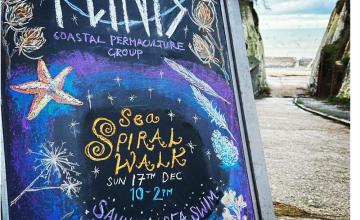 COASTAL PERMACULTURE
GROUP
Sea
SPIRAL
WALK
SUN 17TH DEC
10-2PM
SEA SWIM